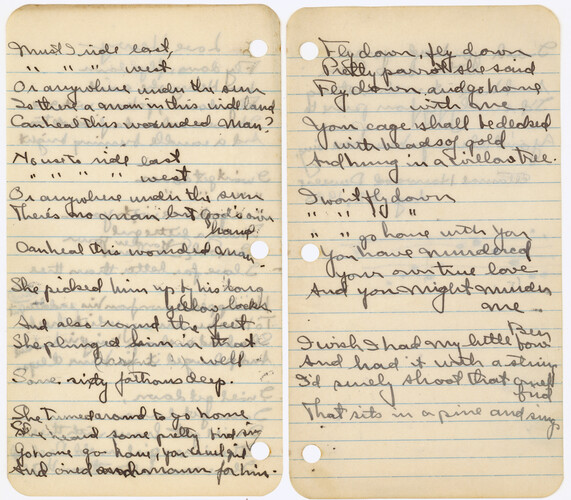 Must I ride east,
" " " west
Or anywhere under the sun
Is there a man in this wide land
Can heal this wounded man?
No use to ride east
" " " " west
Or anywhere under the sun
There's no man but God's own
hand
Can heal this wounded man.
She picked him up by his long
yellow locks
And also round the feet
She plunged him in that
well
Some sixty fathoms deep.
She turned around to go home
She heard some pretty bird sing
Go home go home, you cruel girl
And and mourn for him.
Fly down, fly down
Pretty parrot she said
Fly down, and go home
with me
Your cage shall be decked
with beads of gold
And hung in a willow tree.
I won't fly down
" " " "
" " go home with you
You have murdered
your own true love
And you might murder
me.
I wish I had my little
bow
And had it with a string
I'd surely shoot that cruel
bird
That sits in a pine and sings